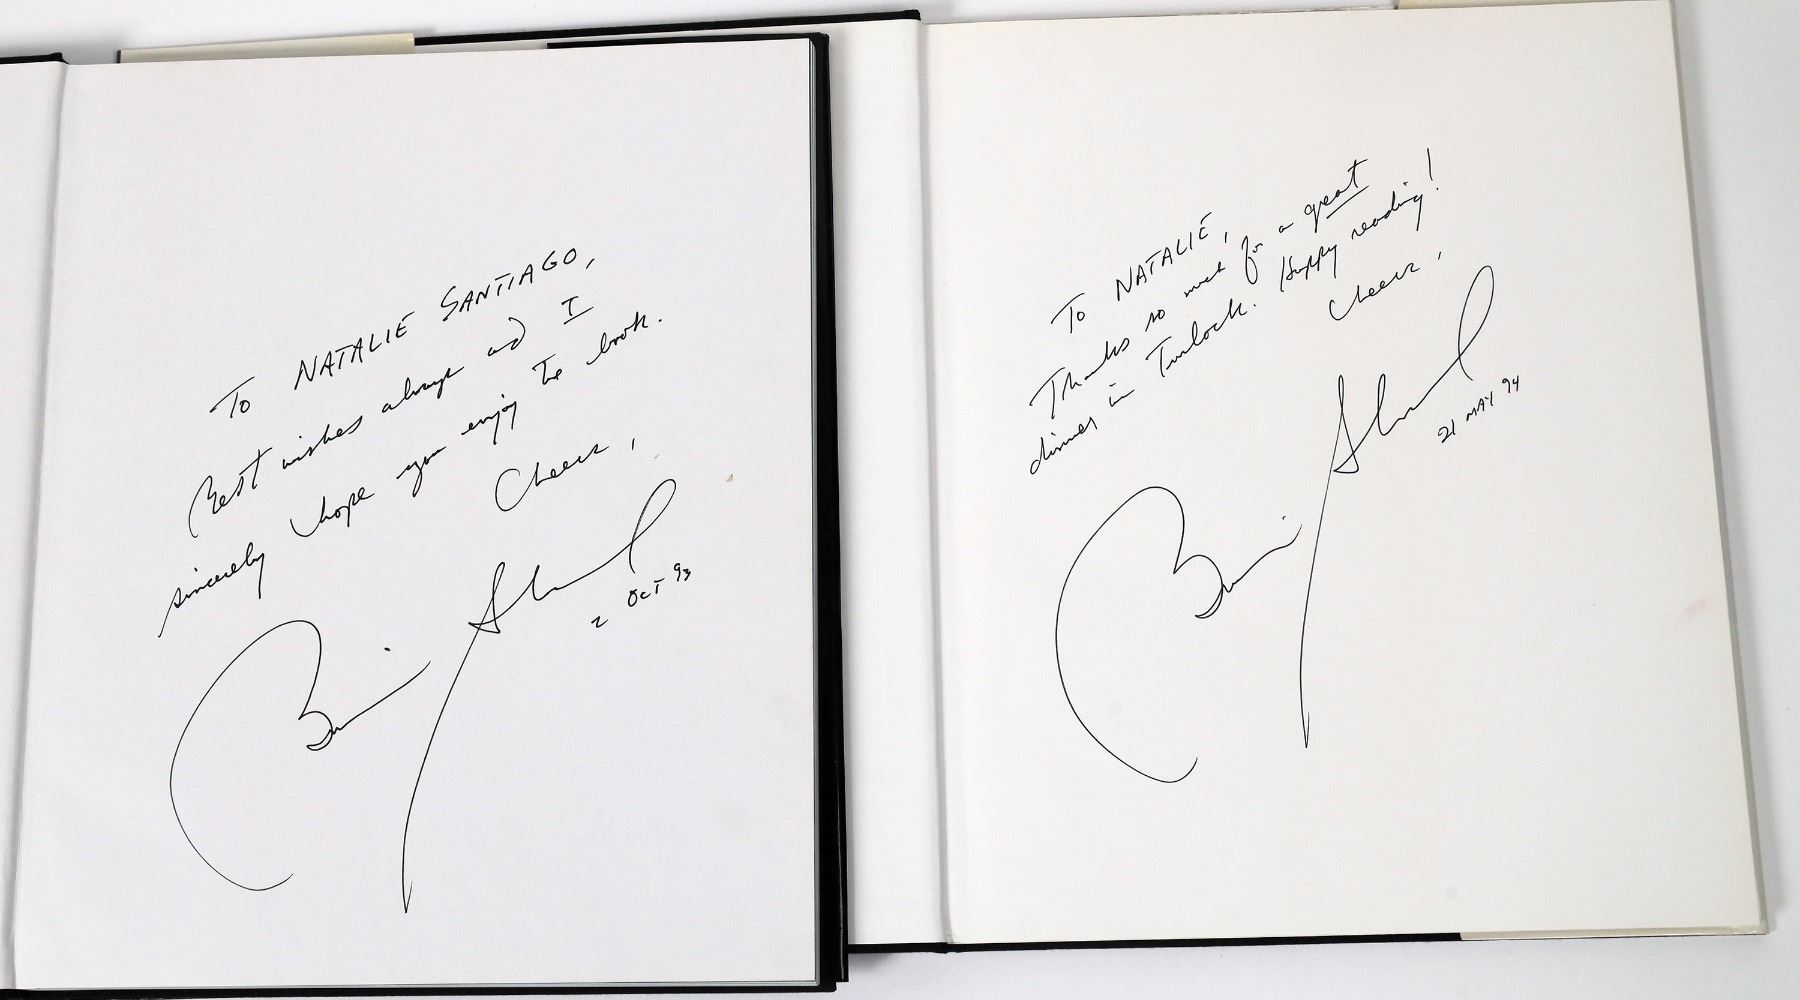 To NATALIE SANTIAGO,
Best wishes always and I
sincerely hope you enjoy the book.
Cheers,
2 OCT 93
To NATALIE,
Thanks so much for a great
dinner in Turlock. Happy reading!
Cheers,
21 MAY 94